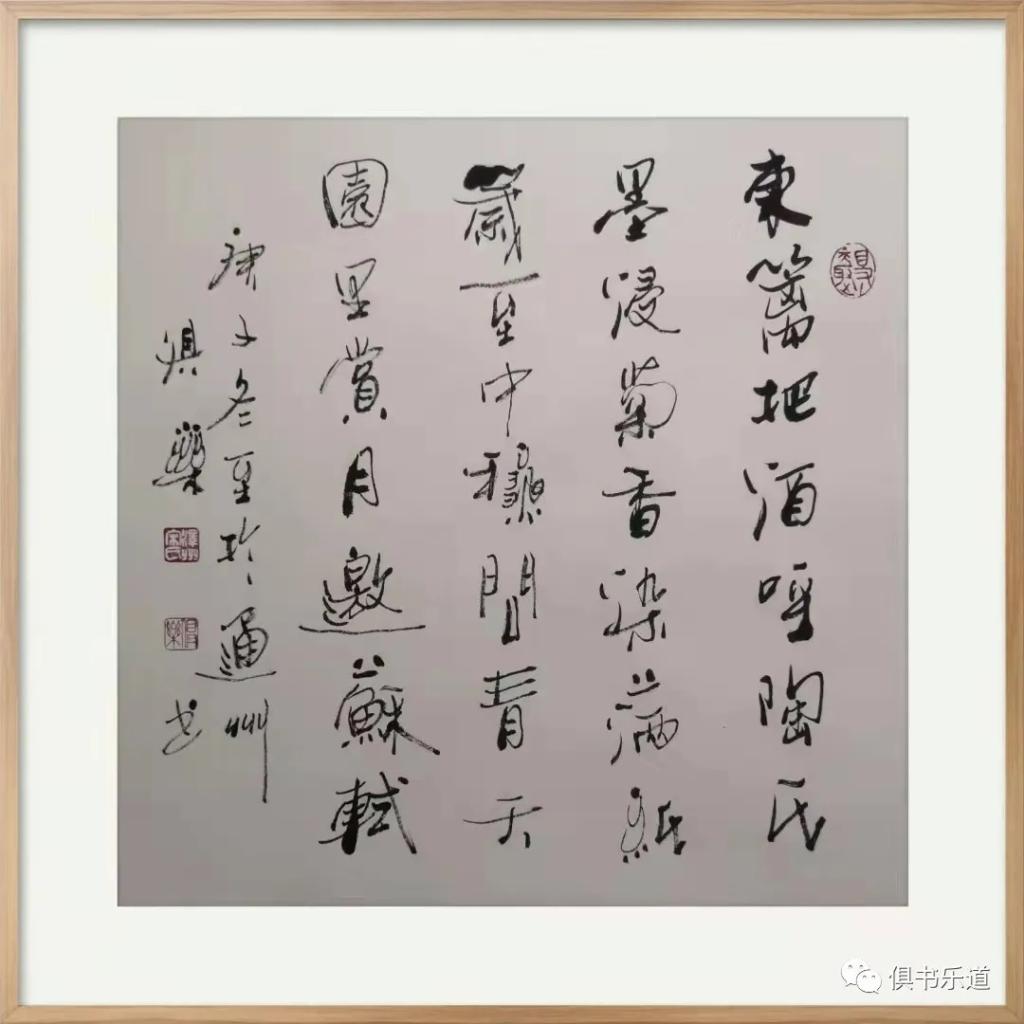 東籬把酒呼陶氏
墨浸菊香染滿紙
歲至中穐問青天
園里賞月邀蘇軾
庚子冬至於通州
俱樂書
俱书乐道